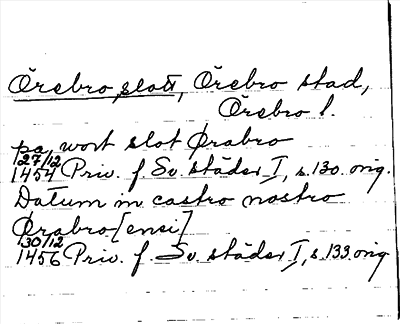 Örebro slott, Örebro stad,
Örebro l.
pa wort slot Ørabro
27/12
1454 Priv. f. Sv. städer I, s. 130. orig.
Datum in castro nostro
Ørabro [ensi]
30/12
1456 Priv. f. Sv. städer I, s. 133. orig